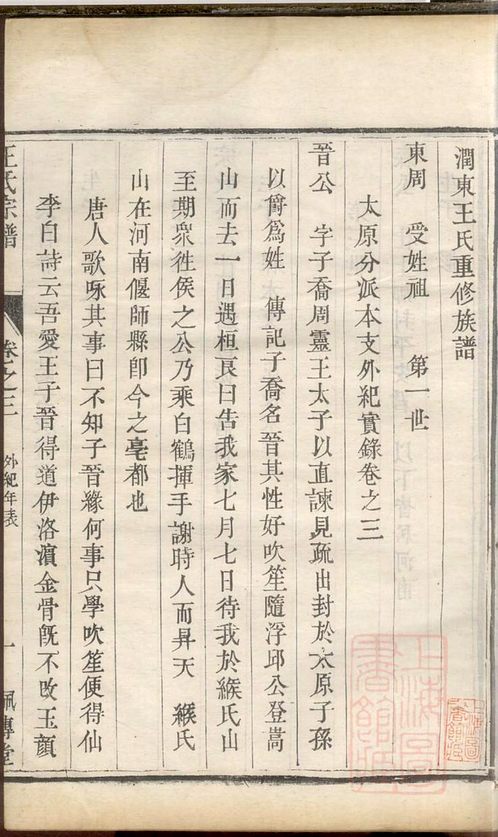 潤東王氏重修族譜
太原分派本支外紀實錄卷之三
東周 受姓祖 第一世
晉公 字子喬周靈王太子以直諫見疏出封於太原子孫
以爵爲姓 傳記子喬名晉其性好吹笙隨浮邱公登嵩
山而去一日遇桓良曰告我家七月七日待我於緱氏山
至期衆徃侯之公乃乘白鶴揮手謝時人而昇天 緱氏
山在河南偃師縣卽今之亳都也
唐人歌咏其事曰不知子晉緣何事只學吹笙便得仙
李白詩云吾愛王子晉得道伊洛濱金骨旣不改玉顏
王氏宗譜 卷之三 外紀年表 一 珮傳堂
上海圖書館藏
上海圖書館藏